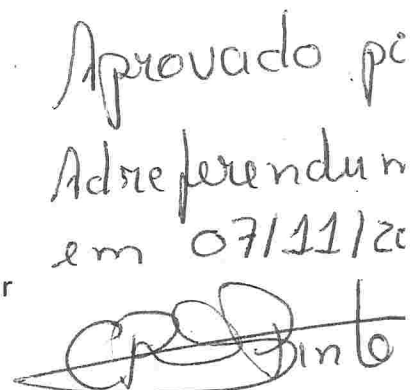 Aprovado
Adreferendum
em 07/11/20
r
Pinto